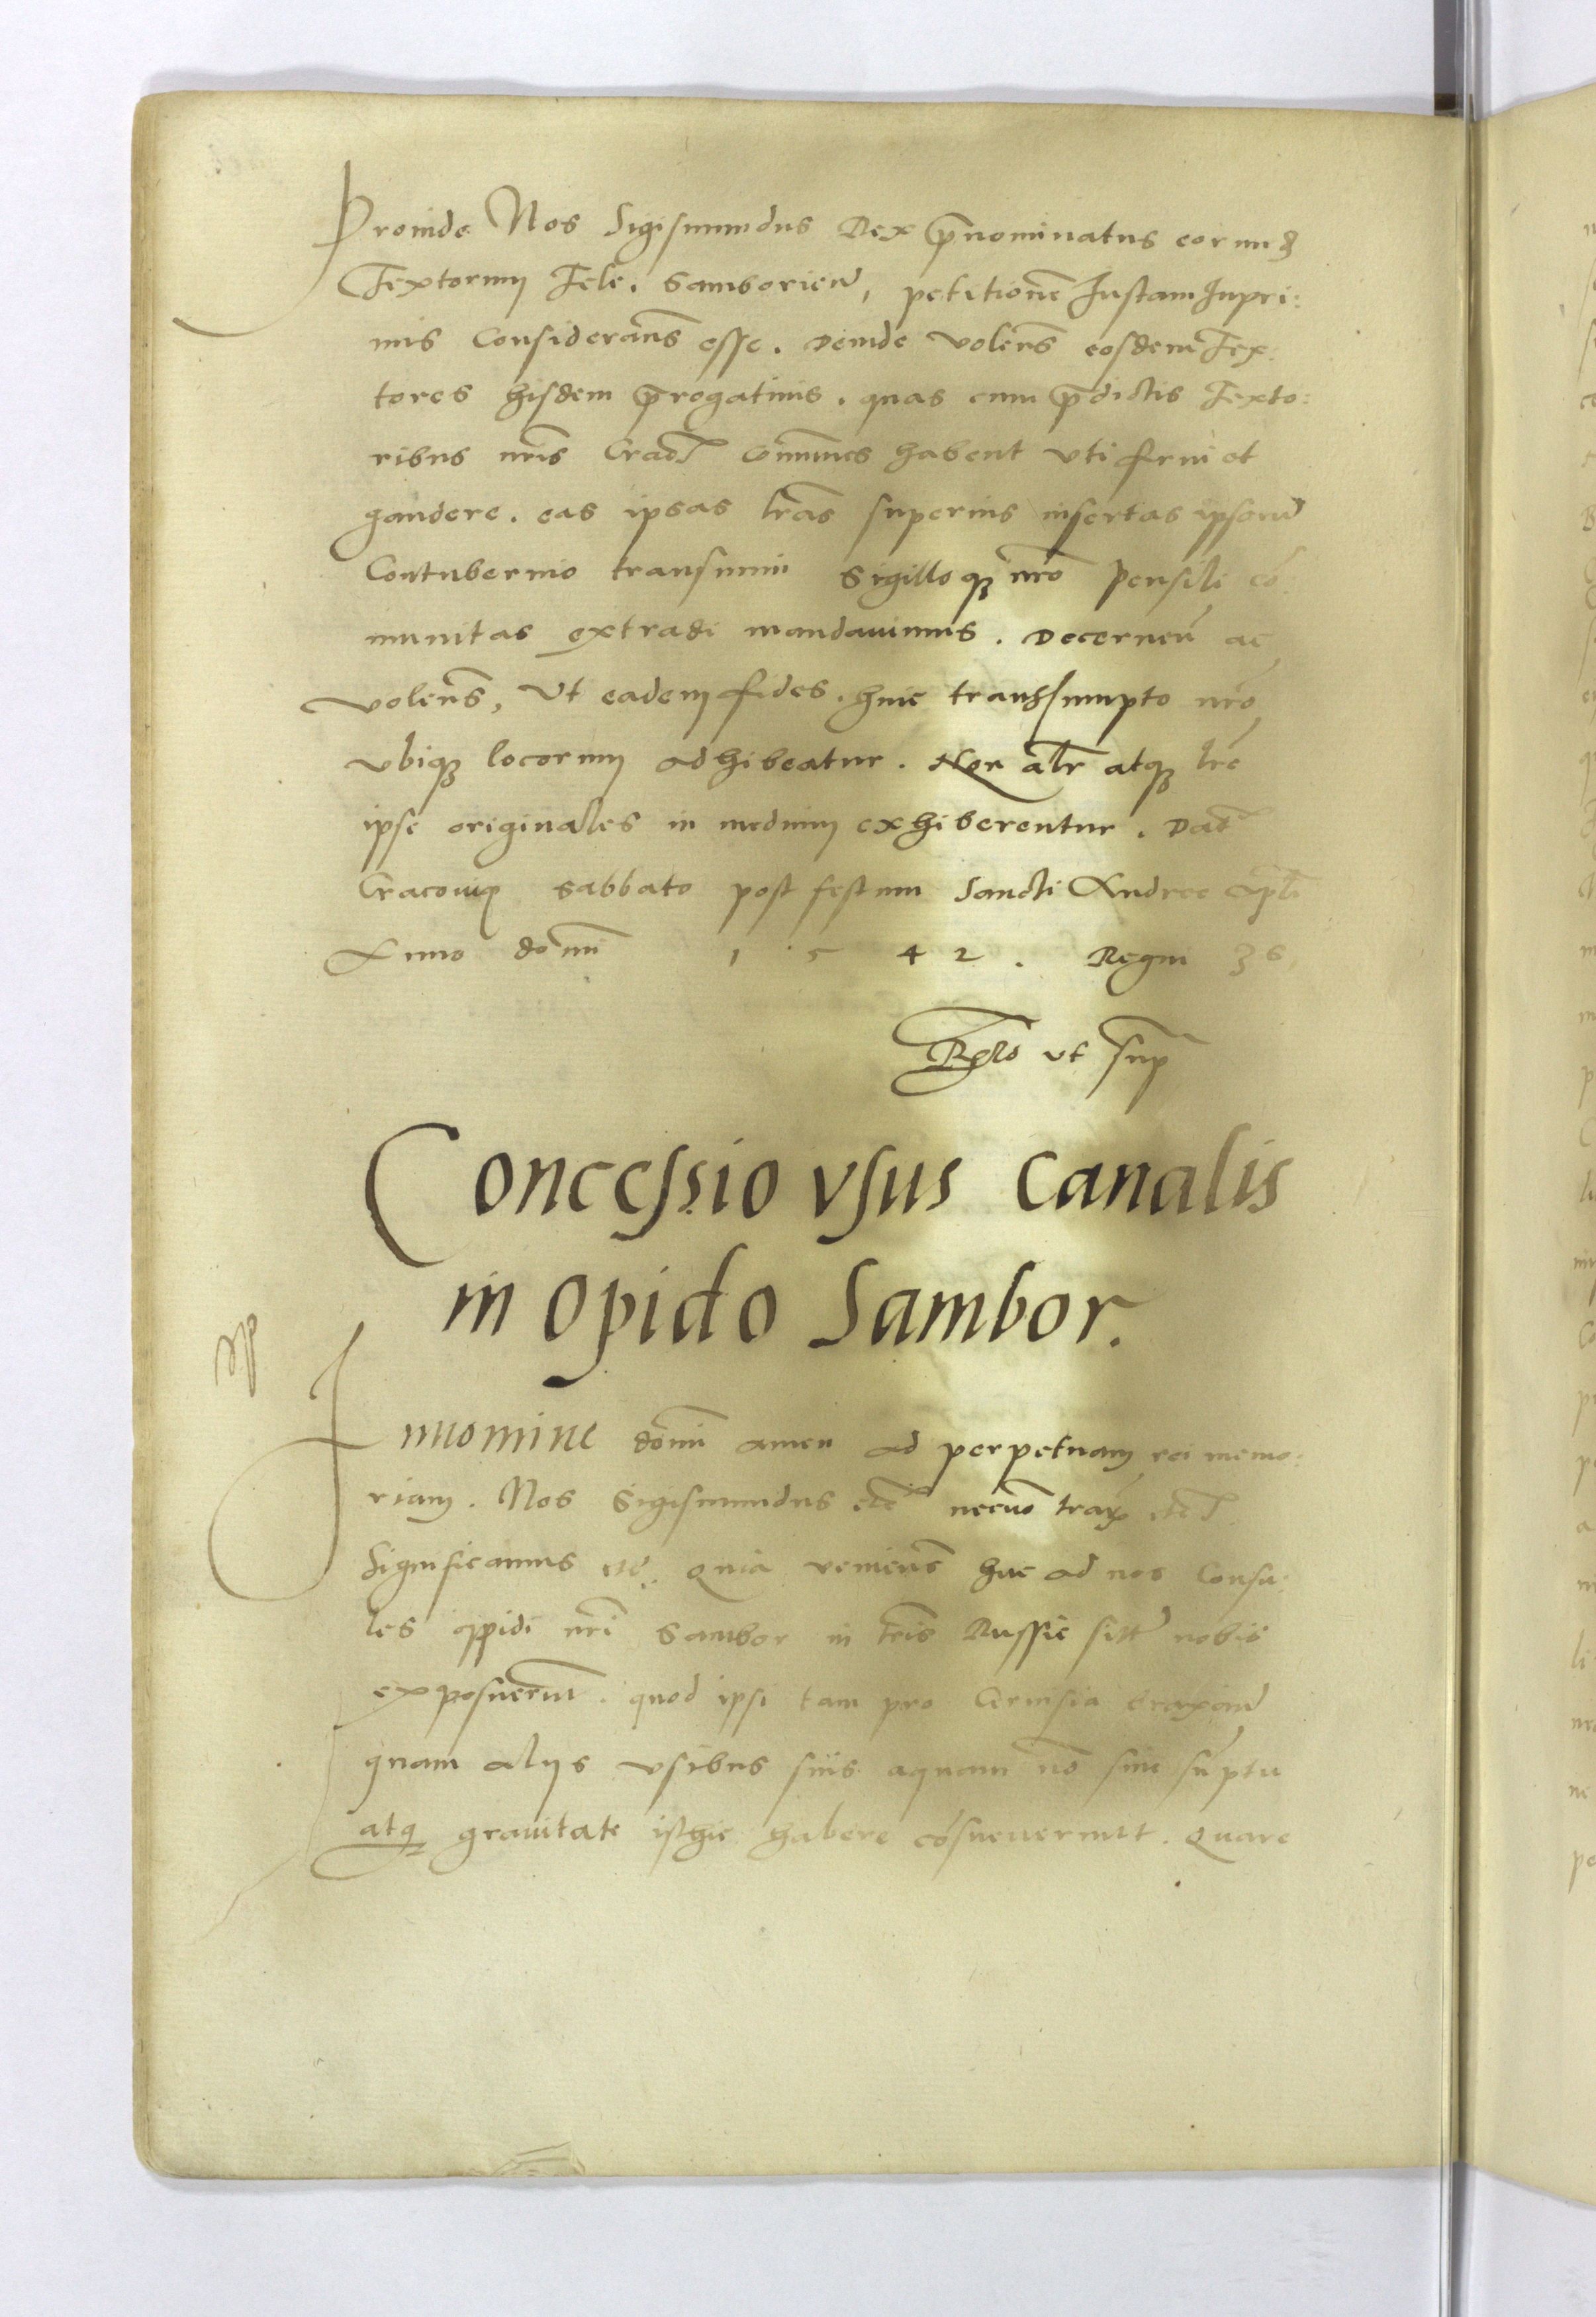 Proinde Nos Sigismundus Rex p̄nominatus eorundꝫ
Textorum Tele. Samborien̄, petitionē Iustam Inpri:
mis Considerans̄ esse. Deinde Volens̄ eosdem Tex:
tores hisdem p̄rogatiuis. quas cum p̄dictis Texto:
ribus nr̄is Crac̄ Co͞munes habent vti frui et
gaudere. eas ipsas lr̄as superius insertas ipsorū
Contubernio transsumi Sigilloqꝫ nr̄o Pensili co͞
munitas extradi mandauimus. Decernen̄ ac
volens̄, Vt eadem fides. huic transsumpto nr̄o
vbiqꝫ locorum adhibeatur. Non alr̄ atqꝫ lr̄e
ipse originales in medium exhiberentur. Dat̄
Cracouię Sabbato post festum Sancti Andree Ap̄li
Anno domī 1 5 4 2. Regni 36
Rel̄o vt sup̄
Concessio vsus Canalis
in opido Sambor.
Innomine domī amen ad perpetuam rei memo:
riam. Nos Sigismundus etc̄ necnō trar̄ etc̄.
Significamus etc̄. Quia veniens̄ huc ad nos Consu:
les oppidi nr̄i Sambor in tr̄is Russie sitt̄ nobis
exposuerūt. quod ipsi tam pro Ceruisia braxan̄
quam alijs vsibus suis aquam nō sine sūptu
atqꝫ grauitate isthic habere cōsueuerunt. Quare